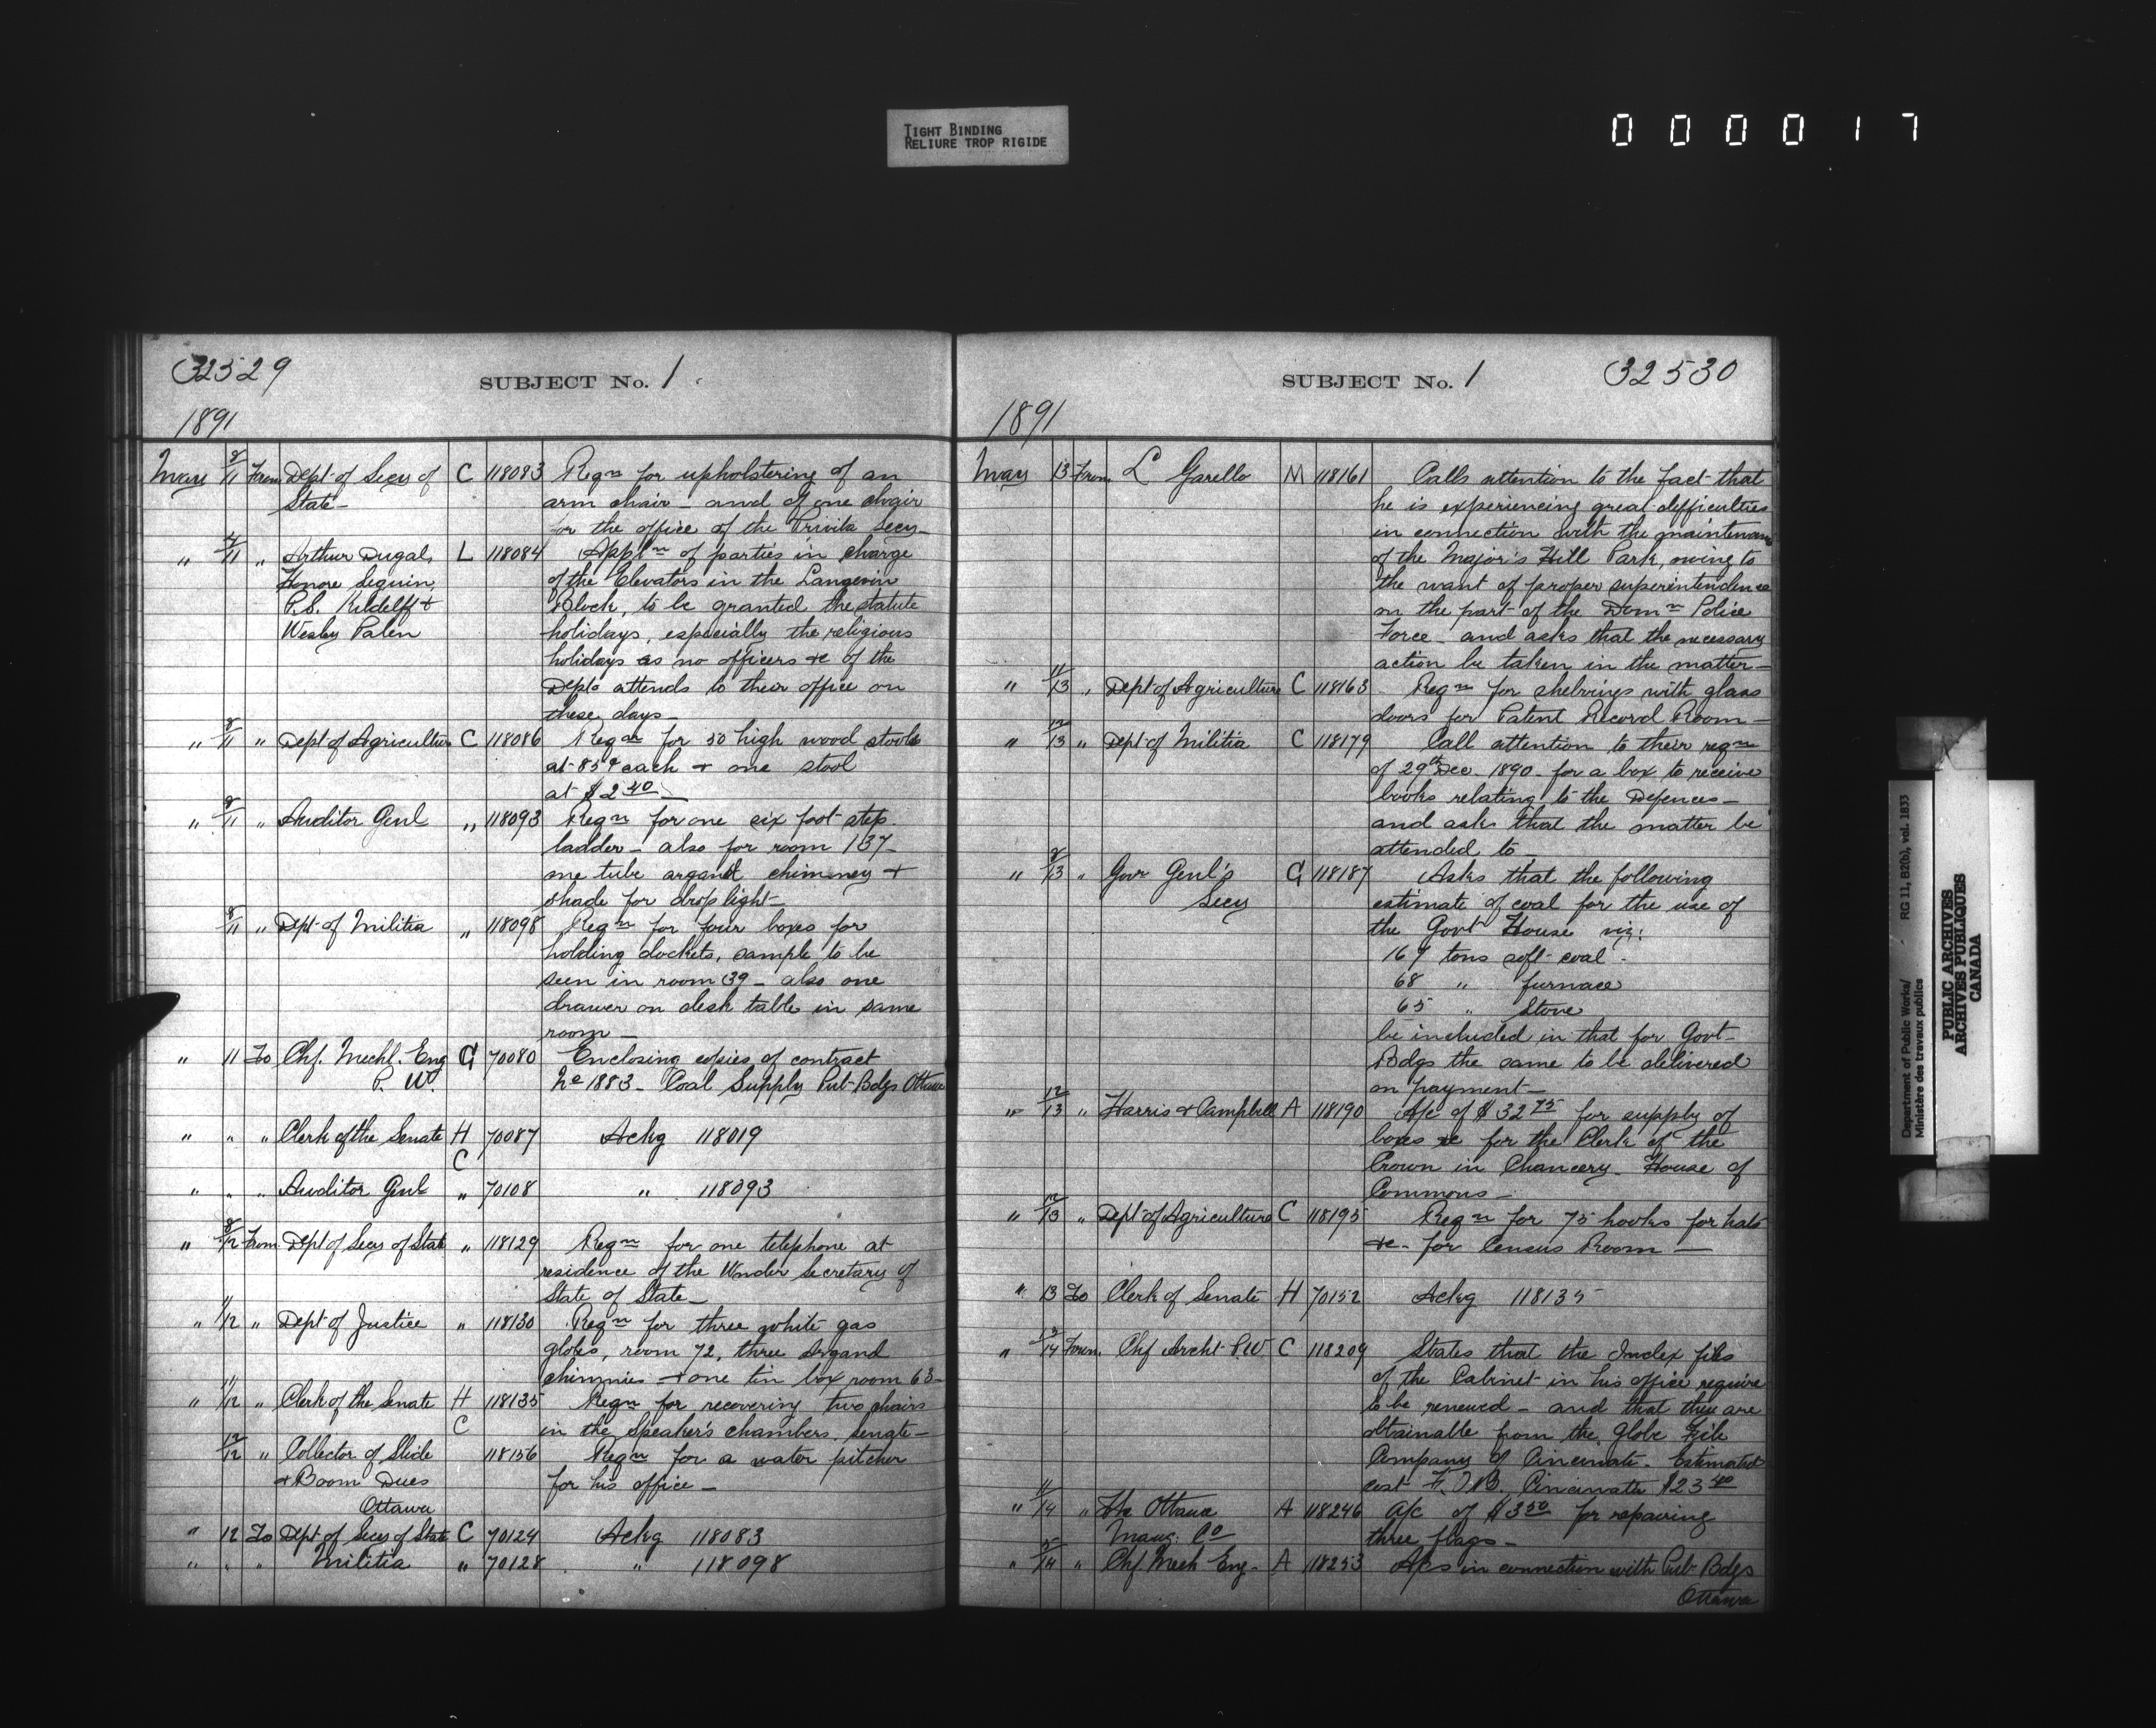 TIGHT BINDING
RELIURE TROP RIGIDE
000017
32529
SUBJECT No. 1
1891
May 8/11 From Dept of Secy of C 118083 Reqn for upholstering of an
State — arm chair — and of one chair
for the office of the Private Secy —
" /11 " Arthur Dugal, L 118084 Appln of parties in charge
Honore Seguin, of the Elevators in the Langevin
P.S. & Block, to be granted the statute
Wesley Palen holidays, especially the religious
holidays as no officers &c of the
Depts attends to their office on
these days —
" 8/11 " Dept of Agriculture C 118086 Reqn for 50 high wood stools
at 85¢ each & one stool
at $2.40 —
" 8/11 " Auditor Genl " 118093 Reqn for one six foot step
ladder — also for room 137 —
one tube argand chimney &
shade for drop light —
8/11 " Dept of Militia " 118098 Reqn for four boxes for
holding dockets, sample to be
seen in room 39 — also one
drawer on desk table in same
room —
" 11 To Chf. Mechl. Eng G 70080 Enclosing copies of contract
P. W. No 1883 — Coal Supply Pub Bdgs Ottawa
" " " Clerk of the Senate H 70087 Ackg 118019
C
" " " Auditor Genl " 70108 " 118093
" 8/12 From Dept of Secy of State " 118129 Reqn for one telephone at
residence of the Under Secretary of
State of State —
" 11/12 " Dept of Justice " 118130 Reqn for three white gas
globes, room 72, three Argand
chimnies & one tin box room 63 —
" 11/12 " Clerk of the Senate H 118135 Reqn for recovering two chairs
C in the Speaker's chambers, Senate —
12/12 " Collector of Slide 118156 Reqn for a water pitcher
& Boom Dues for his office —
Ottawa
" 12 To Dept of Secy of State C 70124 Ackg 118083
" " " Militia " 70128 " 118098
SUBJECT No. 1
32530
1891
May 13 From L Garello M 118161 Calls attention to the fact that
he is experiencing great difficulties
in connection with the maintenance
of the Major's Hill Park, owing to
the want of proper superintendence
on the part of the Domn Police
Force — and asks that the necessary
action be taken in the matter —
" 11/13 " Dept of Agriculture C 118163 Reqn for shelvings with glass
doors for Patent Record Room —
" 12/13 " Dept of Militia C 118179 Call attention to their reqn
of 29th Dec. 1890 for a box to receive
books relating to the Defences —
and asks that the matter be
attended to —
" 8/13 " Govr Genl's G 118187 Asks that the following
Secy estimate of coal for the use of
the Govt House viz:
167 tons soft coal —
68 " furnace
65 " Stove
be included in that for Govt
Bdgs the same to be delivered
on payment —
" 12/13 " Harris & Campbell A 118190 A/c of $32.75 for supply of
boxes &c for the Clerk of the
Crown in Chancery. House of
Commons —
" 12/13 " Dept of Agriculture C 118195 Reqn for 75 hooks for hats
&c. for Census Room —
" 13 To Clerk of Senate H 70152 Ackg 118135
" 13/14 From Chf Archt P.W C 118209 States that the Index files
of the Cabinet in his office require
to be renewed — and that they are
obtainable from the Globe File
Company of Cincinnate. Estimated
cost F.O.B. Cincinnate $23.40
" 11/14 " The Ottawa A 118246 A/c of $3.50 for repairing
Co three flags —
" /14 " Chf. Mech Eng — A 118253 A/cs in connection with Pub Bdgs
Ottawa
Department of Public Works/ RG 11, B2(b), vol. 1833
Ministère des travaux publics
PUBLIC ARCHIVES
ARCHIVES PUBLIQUES
CANADA